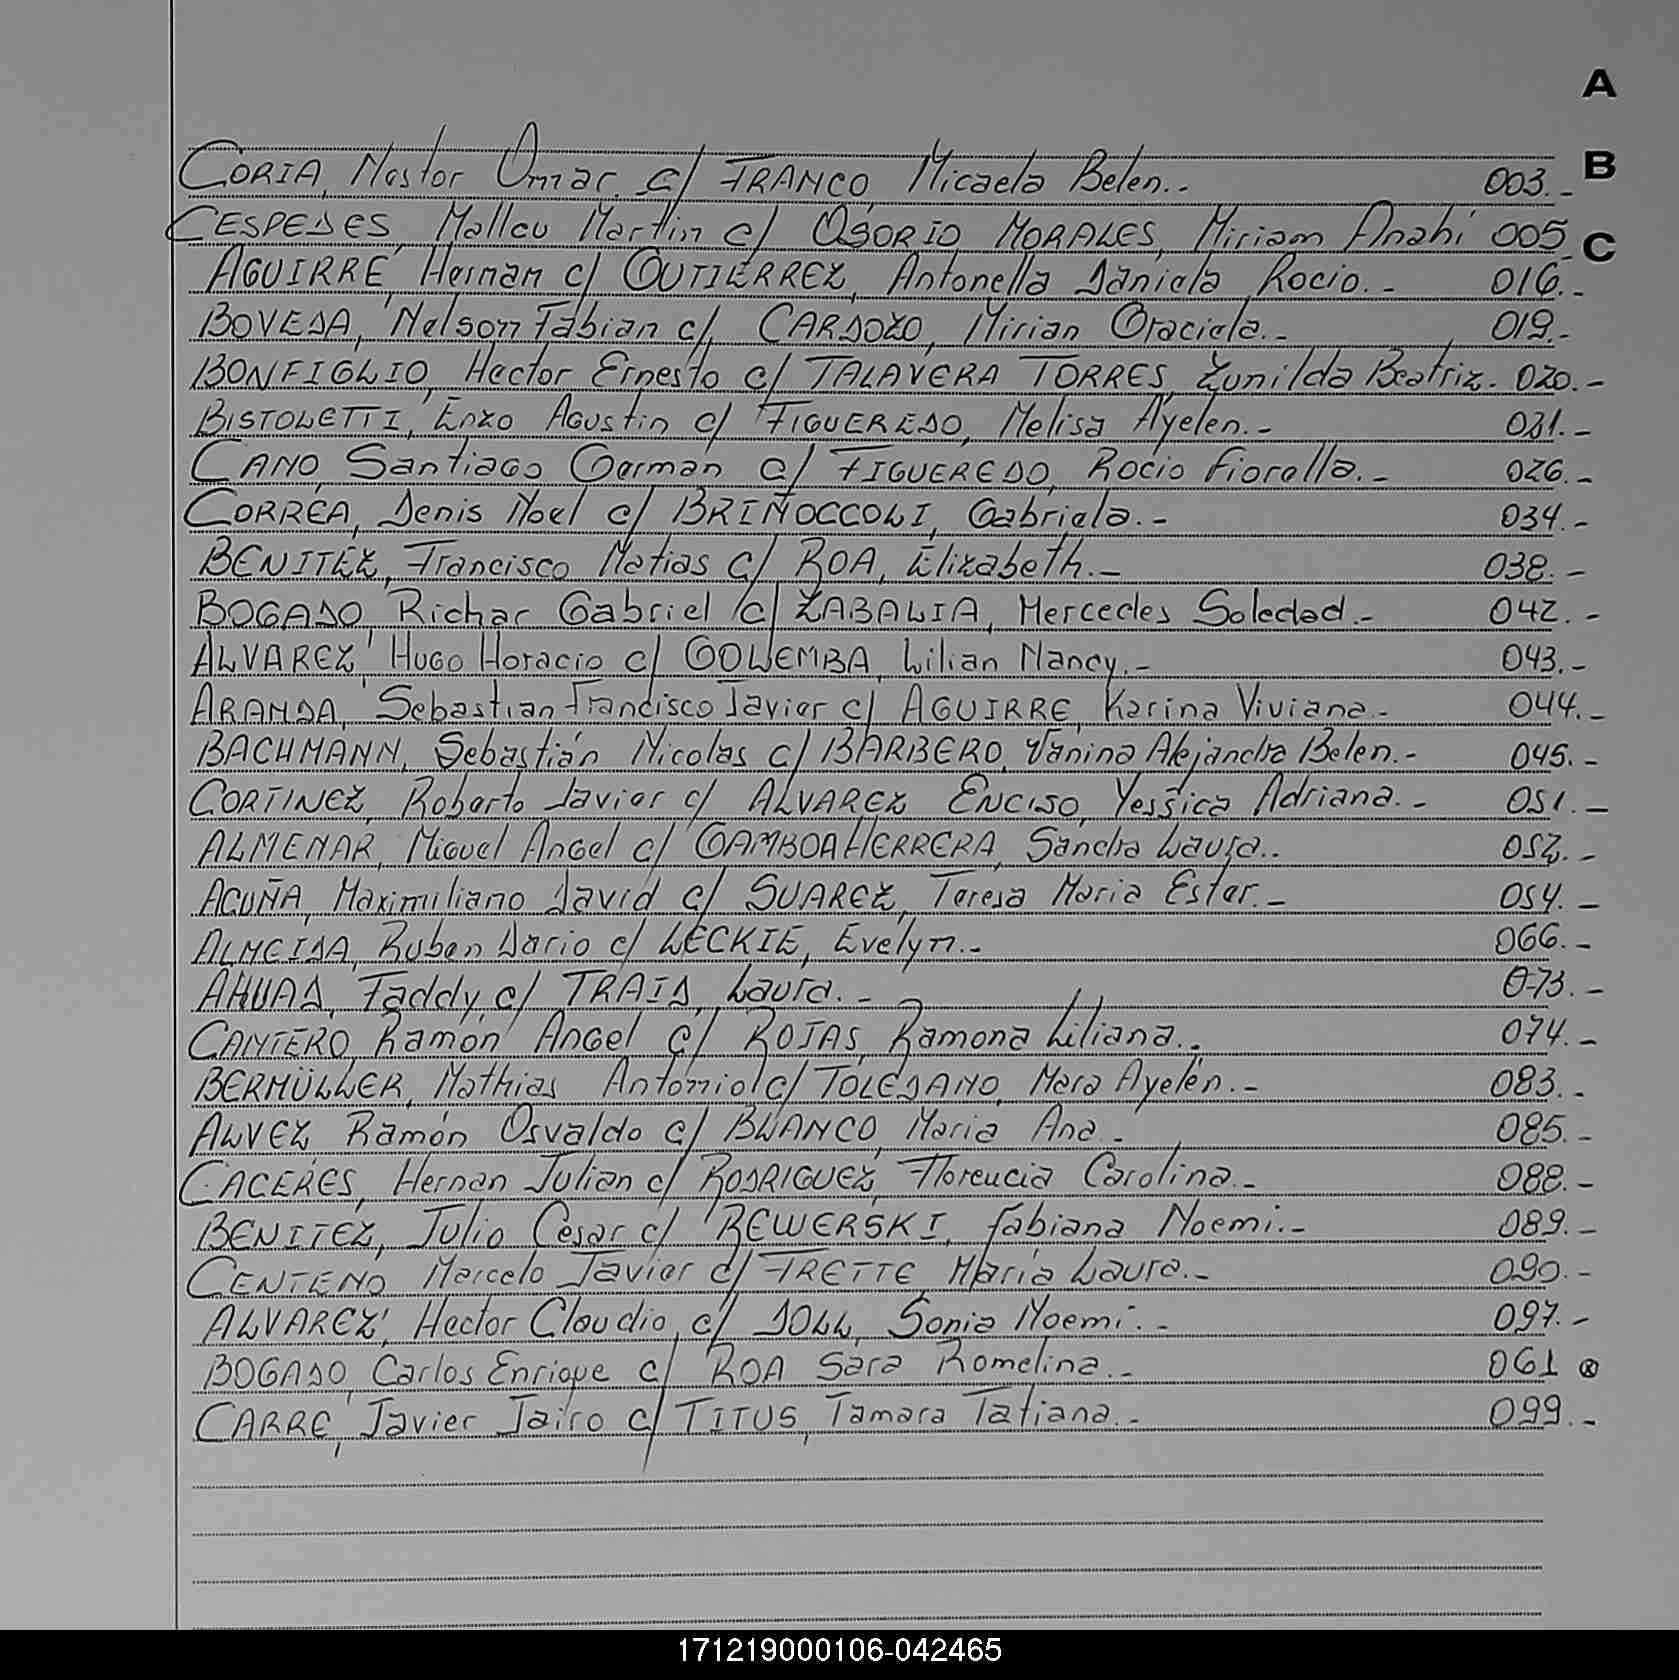 A
B
CORIA, Nestor Omar. c/ FRANCO, Micaela Belen.. 003.-
C
CESPEDES, Matteu Martin c/ OSORIO MORALES, Miriam Anahi 005.
AGUIRRE, Hernan c/ GUTIERREZ, Antonella Daniela Rocio.- 016.-
BOVEDA, Nelson Fabian c/ CARDOZO, Mirian Graciela.- 019.-
BONFIGLIO, Hector Ernesto c/ TALAVERA TORRES, Zunilda Beatriz. 020.-
BISTOLETTI, Enzo Agustin c/ FIGUEREDO, Melisa Ayelen.- 021.-
CANO, Santiago German c/ FIGUEREDO, Rocio Fiorella.- 026.-
CORREA, Denis Noel c/ BRIÑOCCOLI, Gabriela.- 034.-
BENITEZ, Francisco Matias c/ ROA, Elizabeth.- 038.-
BOGADO, Richar Gabriel c/ ZABALIA, Mercedes Soledad.- 042.-
ALVAREZ, Hugo Horacio c/ GOLEMBA, Lilian Nancy.- 043.-
ARANDA, Sebastian Francisco Javier c/ AGUIRRE, Karina Viviana.- 044.-
BACHMANN, Sebastián Nicolas c/ BARBERO, Vanina Alejandra Belen.- 045.-
CORTINEZ, Roberto Javier c/ ALVAREZ ENCISO, Yessica Adriana.- 051.-
ALMENAR, Miguel Angel c/ GAMBOA HERRERA, Sandra Laura.. 052.-
ACUÑA, Maximiliano David c/ SUAREZ, Teresa Maria Ester.- 054.-
ALMEIDA, Ruben Dario c/ LECKIE, Evelyn.- 066.-
AHUAD, Faddy, c/ TRAID, Laura.- 073.-
CANTERO, Ramón Angel c/ ROJAS, Ramona Liliana.. 074.-
BERMÜLLER, Mathias Antonio c/ TOLEDANO, Mara Ayelén.- 083.-
ALVEZ, Ramón Osvaldo c/ BLANCO, Maria Ana.- 085.-
CACERES, Hernan Julian c/ RODRIGUEZ, Florencia Carolina.- 088.-
BENITEZ, Julio Cesar c/ REWERSKI, Fabiana Noemi.- 089.-
CENTENO, Marcelo Javier c/ FRETTE, Maria Laura.- 090.-
ALVAREZ, Hector Claudio, c/ DOLL, Sonia Noemi.- 097.-
BOGADO, Carlos Enrique c/ ROA Sara Romelina.- 061 ⊗
CARRE, Javier Jairo c/ TITUS, Tamara Tatiana.- 099.-
171219000106-042465